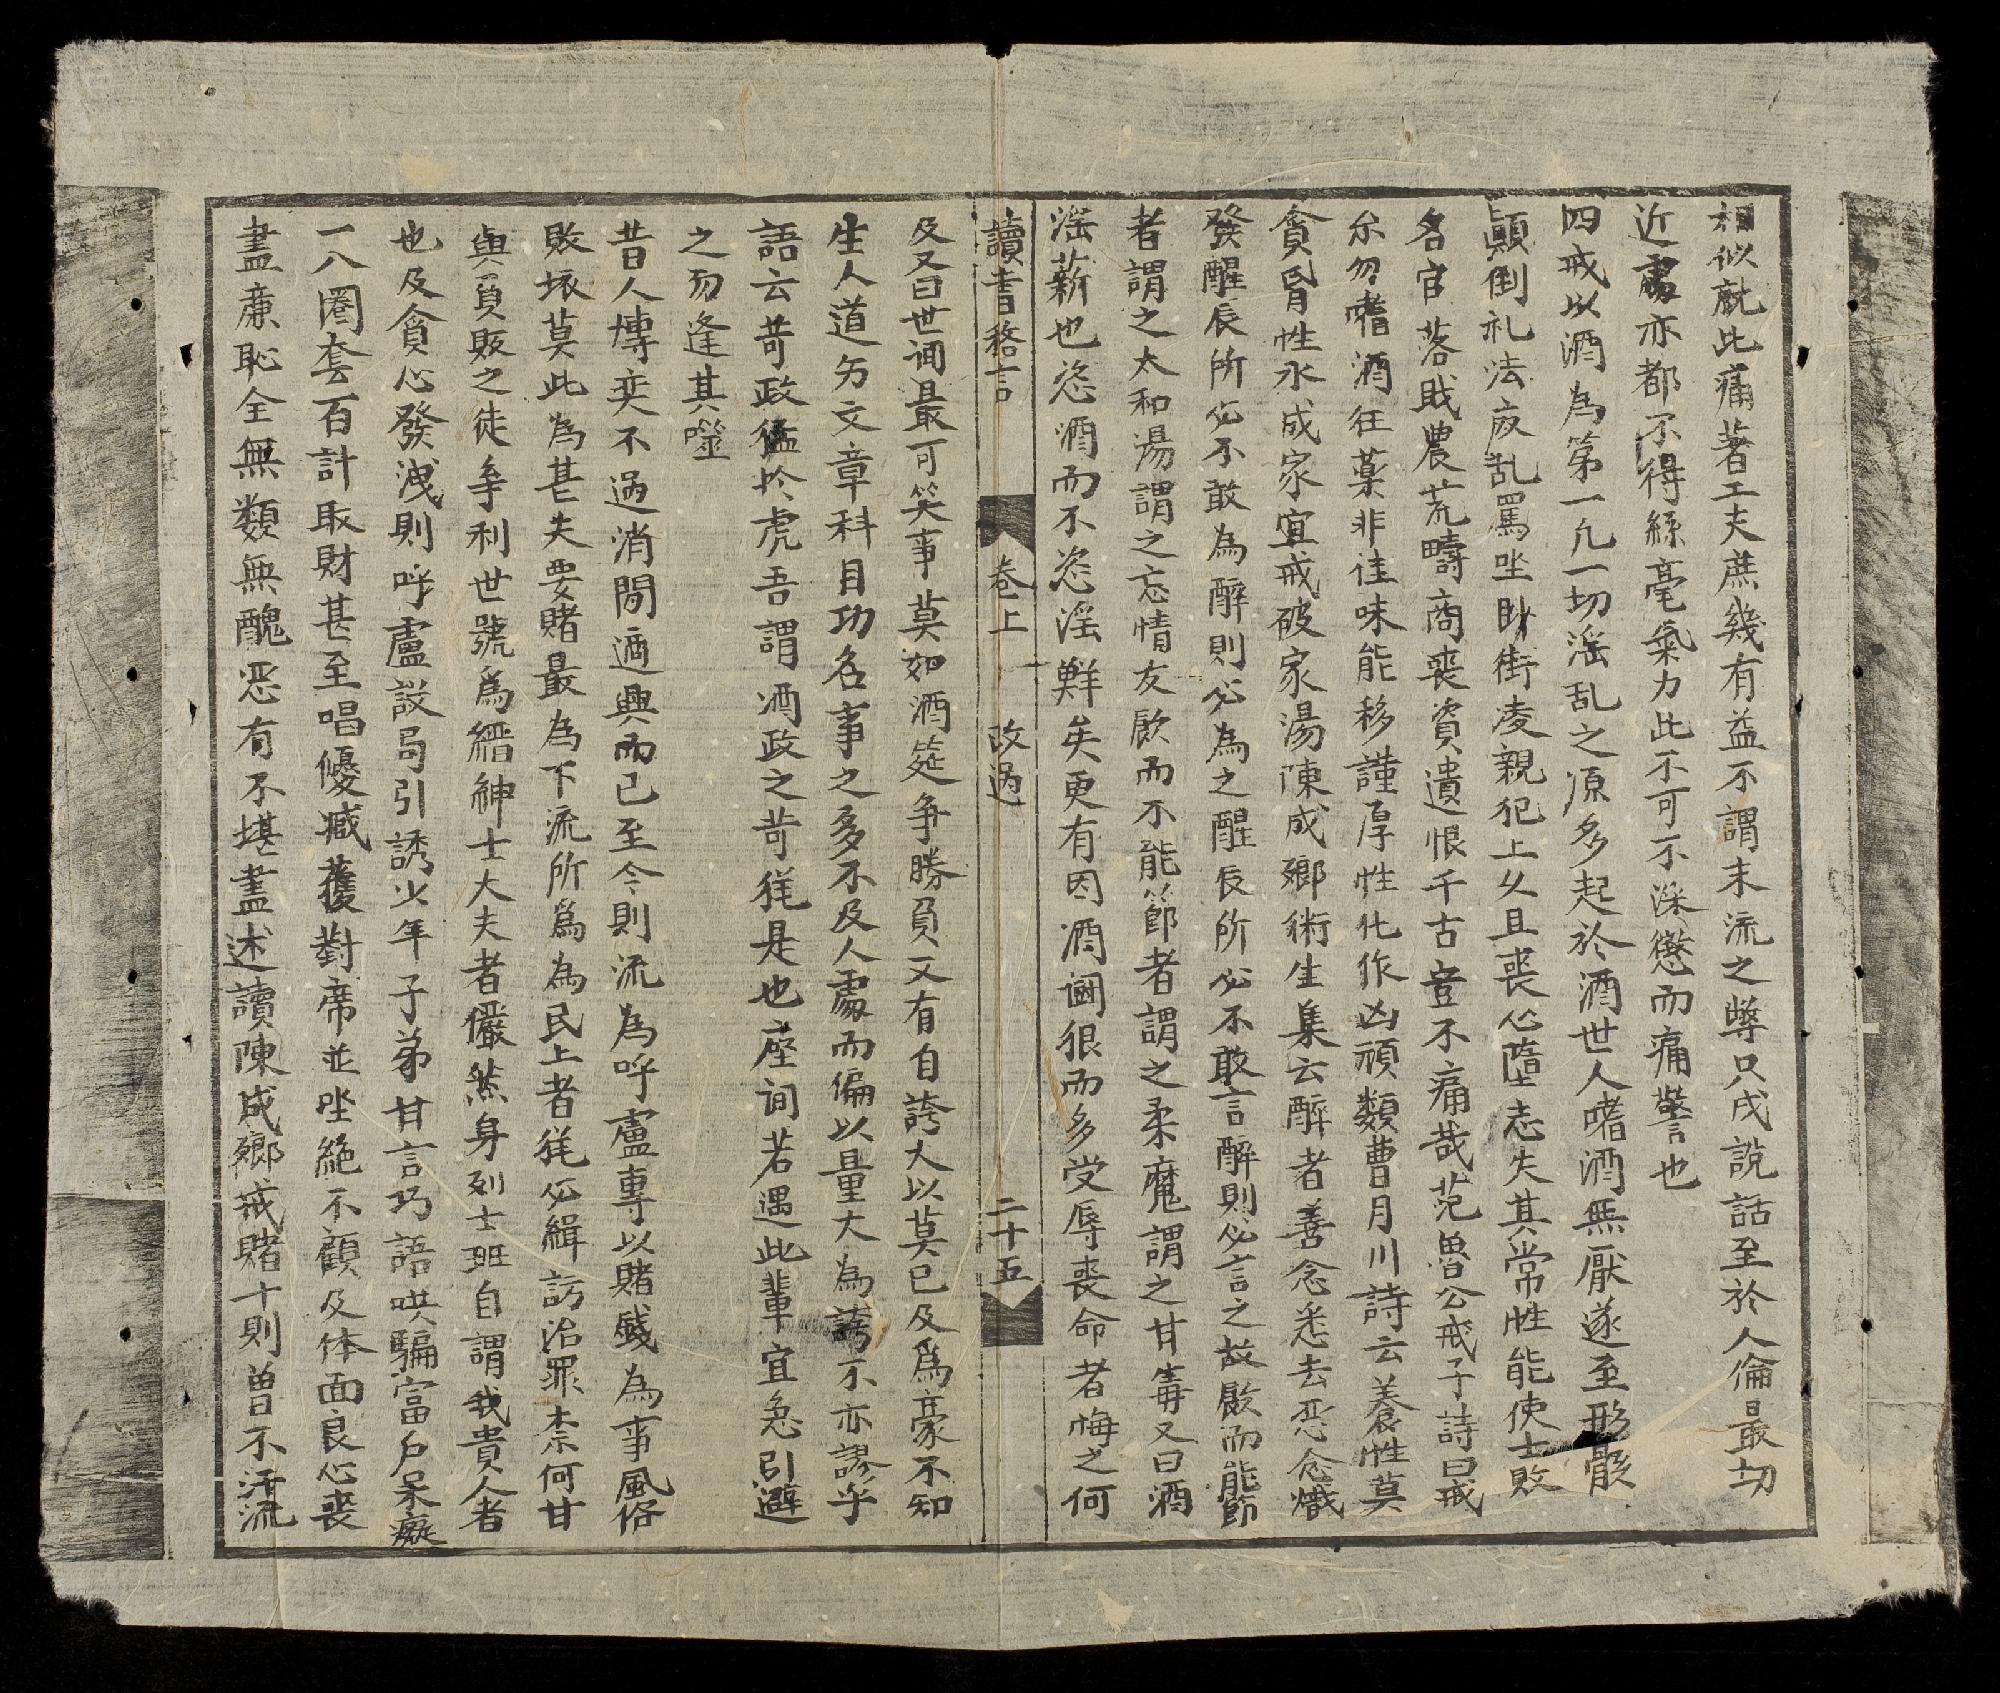 相似就此痛著工夫庶幾有益不謂末流之獘只成說話至於人倫最切
近處亦都不得絲毫氣力此不可不深懲而痛警也
四戒以酒為第一凢一切滛乱之原多起於酒世人嗜酒無厭遂至形骸
顛倒礼法廢乱罵坐卧街凌親犯上父且喪心墮志失其常性能使士敗
名官落賊農荒疇商喪資遺恨千古豈不痛哉范魯公戒子詩曰戒
尒勿嗜酒狂藥非佳味能移謹厚性化作凶頑類曹月川詩云養性莫
貪昏性氷成家宜戒破家湯陳成鄉術生集云醉者善念悉去惡念熾
發醒辰所必不敢為醉則必為之醒辰所必不敢言醉則必言之故飲而能節
者謂之太和湯謂之忘情友飲而不能節者謂之柔魔謂之甘毒又曰酒
滛薪也恣酒而不恣滛鮮矣更有因酒鬪很而多受辱喪命者悔之何
讀書格言 卷上 改過 二十五
及又曰世间最可笑事莫如酒筵争勝負又有自誇大以莫己及爲豪不知
生人道义文章科目功名事之多不及人處而偏以量大為誇不亦謬乎
語云苛政猛扵虎吾謂酒政之苛猶是也座间若遇此輩宜急引避
之勿逢其噬
昔人博奕不過消閒適興而已至今則流為呼盧專以賭錢為事風俗
敗壞莫此為甚夫耍賭最為下流所爲為民上者猶必緝訪治罪柰何甘
與負販之徒争利世號爲縉紳士大夫者儼然身列士班自謂我貴人者
也及貪心發洩則呼盧設局引誘少年子弟甘言巧語哄騙富戶呆癡
一八圈套百計取財甚至唱優臧獲對席並坐絶不顧及体面良心喪
盡廉恥全無類無醜惡有不堪盡述讀陳成鄉戒賭十則曾不汗流